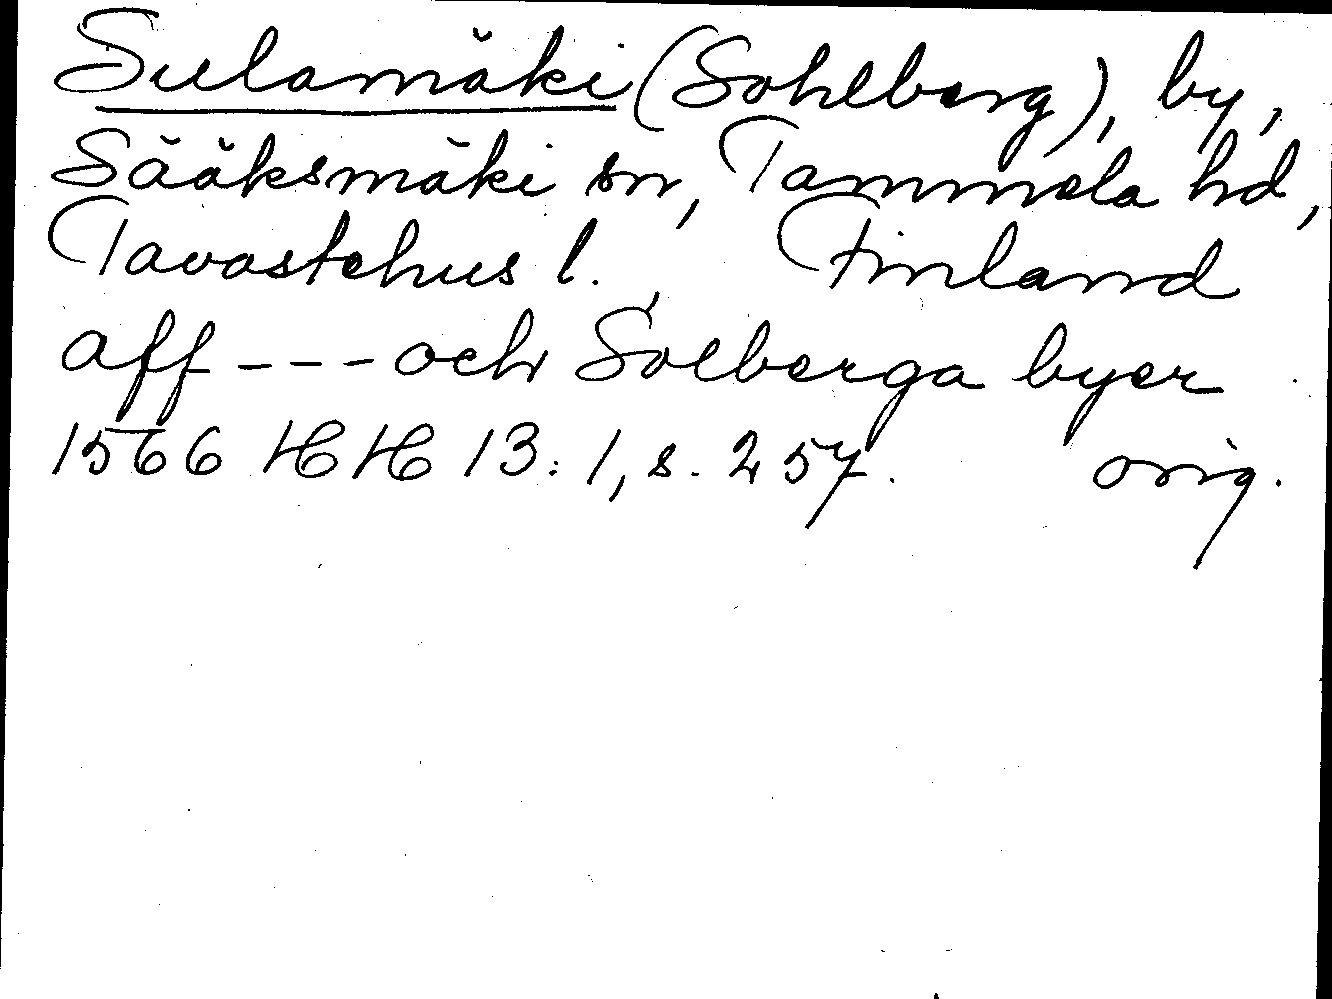 Sulamäki (Sohlberg), by,
Sääksmäki sn, Tammela hd,
Tavastehus l., Finland
aff --- och Solberga byer
1566 HH 13:1, s. 257. orig.